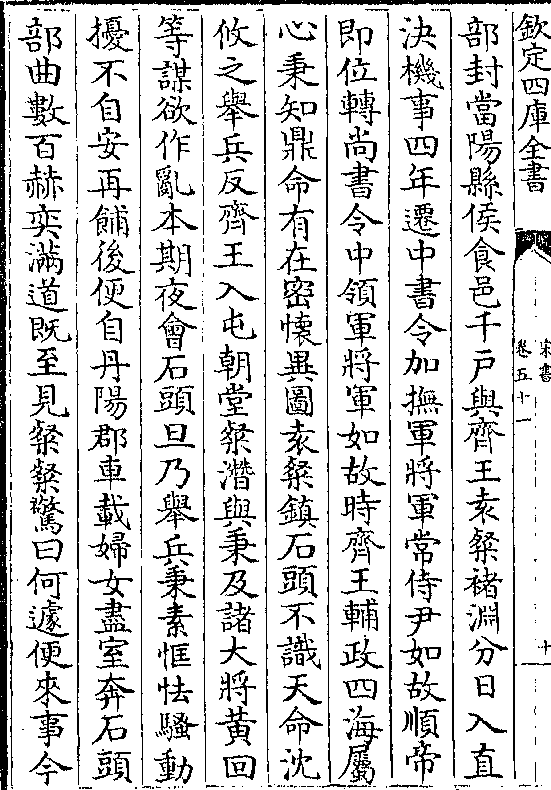 欽定四庫全書
宋書
卷五十一
十
部封當陽縣侯食邑千戶與齊王袁粲褚淵分日入直
決機事四年遷中書令加撫軍將軍常侍尹如故順帝
即位轉尚書令中領軍將軍如故時齊王輔政四海屬
心秉知鼎命有在密懷異圖袁粲鎮石頭不識天命沈
攸之舉兵反齊王入屯朝堂粲潛與秉及諸大將黃回
等謀欲作亂本期夜會石頭旦乃舉兵秉素恇怯騷動
擾不自安再餔後便自丹陽郡車載婦女盡室奔石頭
部曲數百赫奕滿道既至見粲粲驚曰何遽便來事今